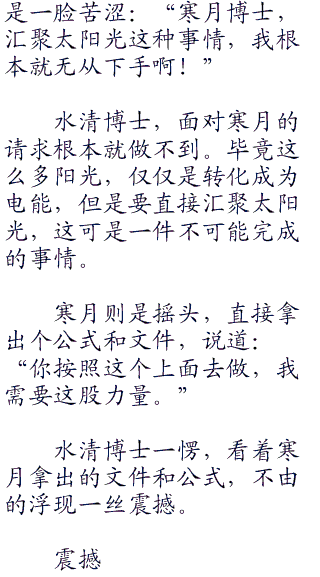 是一脸苦涩：“寒月博士，
汇聚太阳光这种事情，我根
本就无从下手啊！”
水清博士，面对寒月的
请求根本就做不到。毕竟这
么多阳光，仅仅是转化成为
电能，但是要直接汇聚太阳
光，这可是一件不可能完成
的事情。
寒月则是摇头，直接拿
出个公式和文件，说道：
“你按照这个上面去做，我
需要这股力量。”
水清博士一愣，看着寒
月拿出的文件和公式，不由
的浮现一丝震撼。
震撼